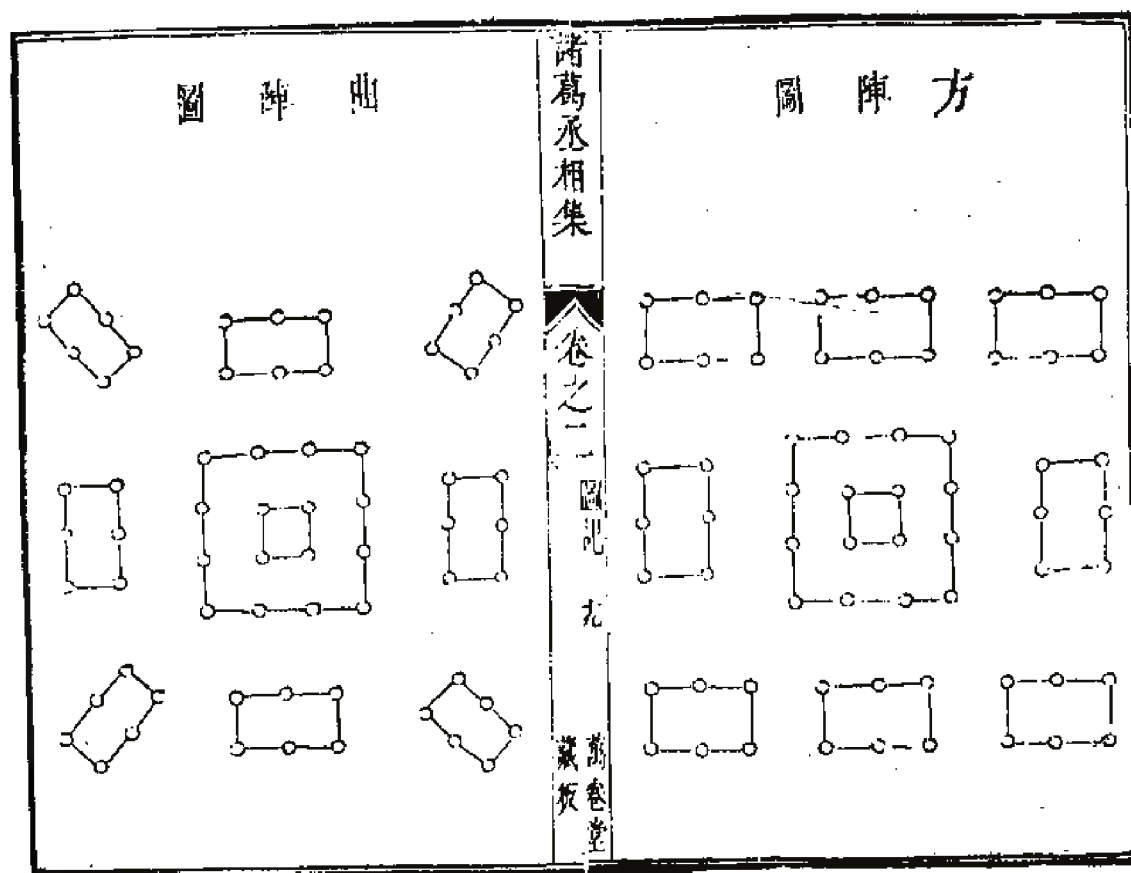 方陣圖
諸葛丞相集
卷之二
圖
九
萬卷堂
藏板
曲陣圖